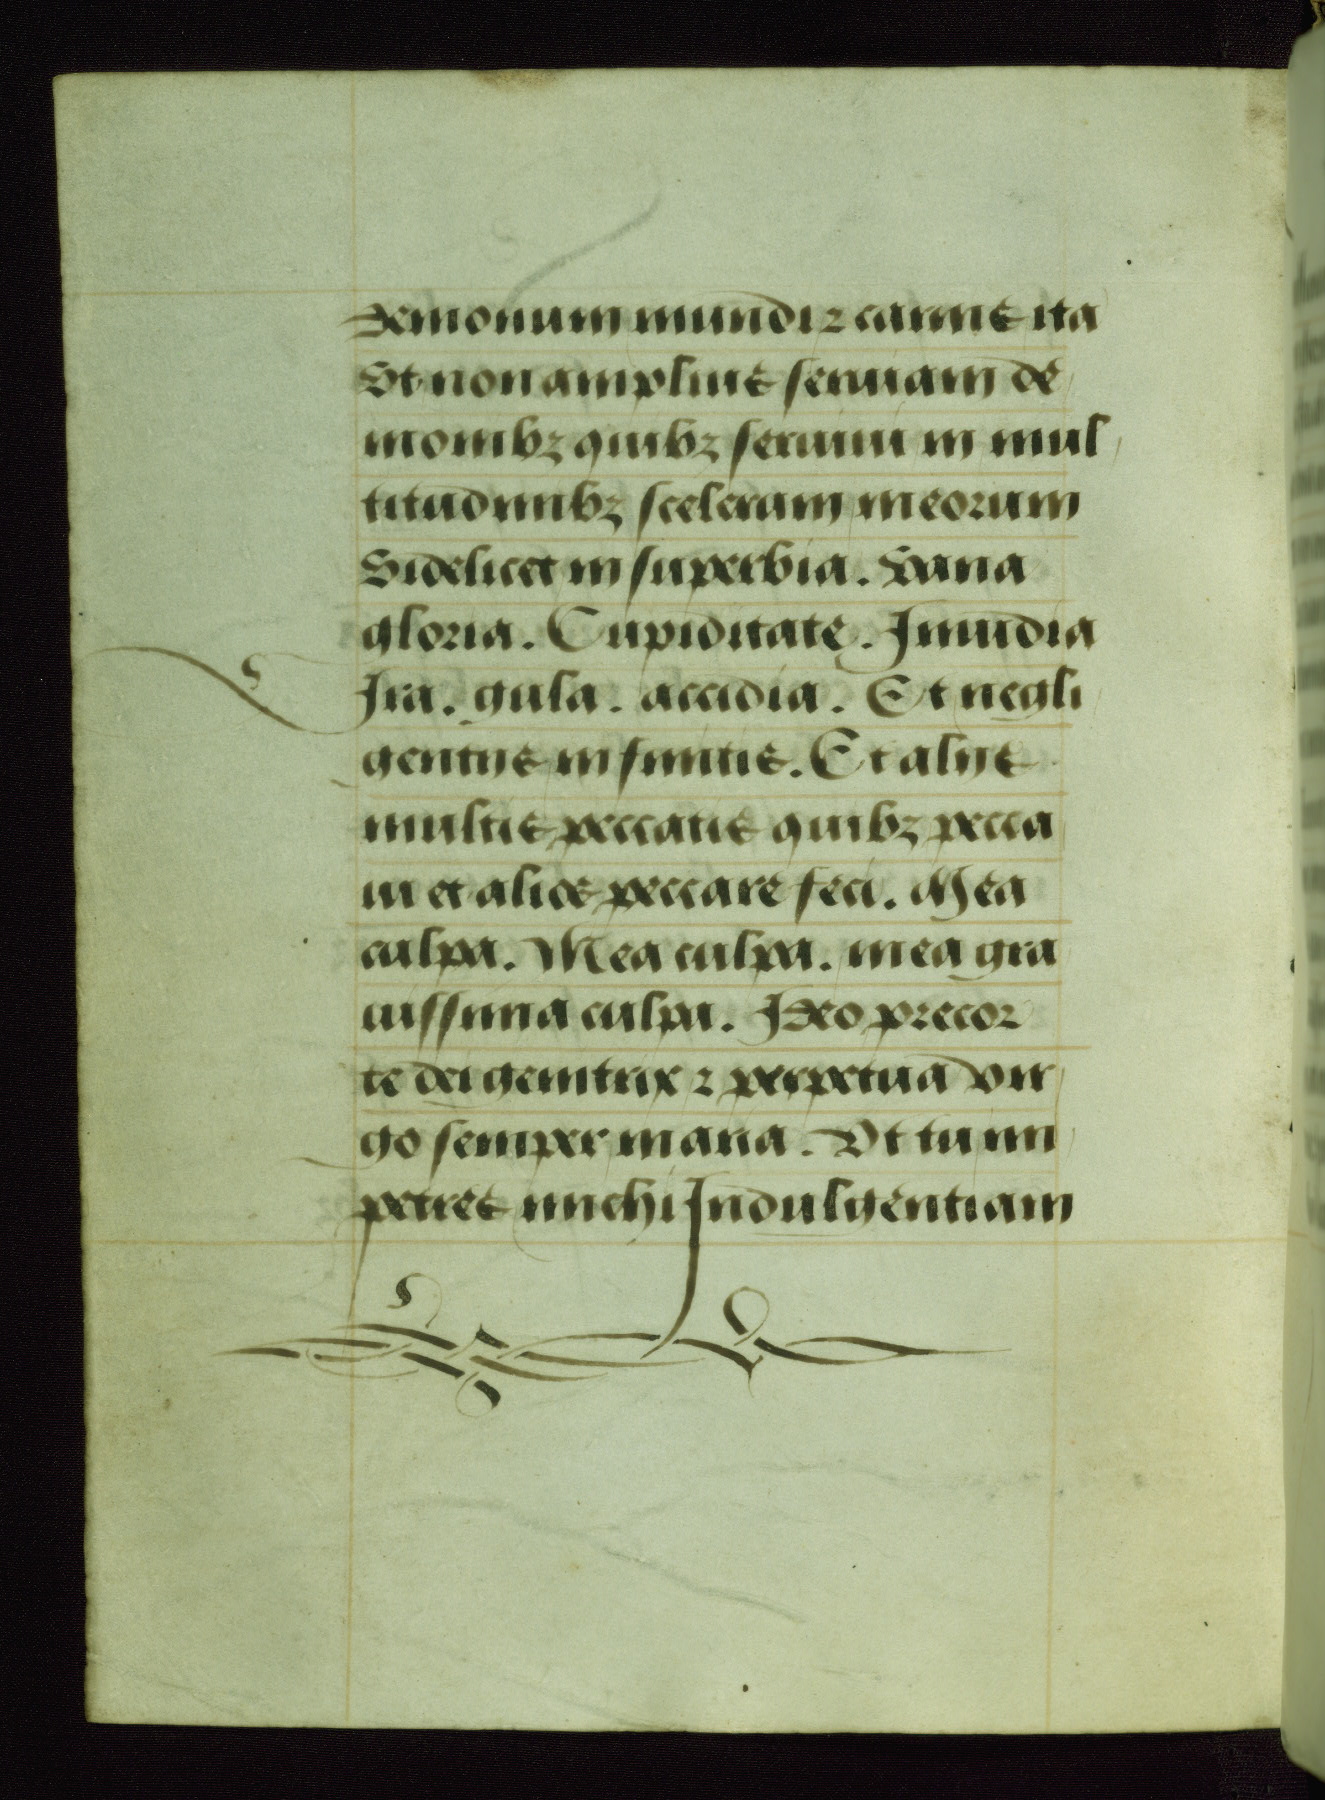 demonum mundi ⁊ carnis ita
Vt non amplius seruiam de
monibꝫ quibꝫ seruiui in mul
titudinibꝫ scelerum meorum
Videlicet in superbia. Vana
gloria. Cupiditate. Inuidia
Ira. gula. accidia. Et negli
gentijs infinitis. Et alijs
multis peccatis quibꝫ pecca
ui et alios peccare feci. Mea
culpa. Mea culpa. mea gra
uissima culpa. Ideo precor
te dei genitrix ⁊ perpetua vir
go semper maria. Vt tu im
petres michi Indulgentiam